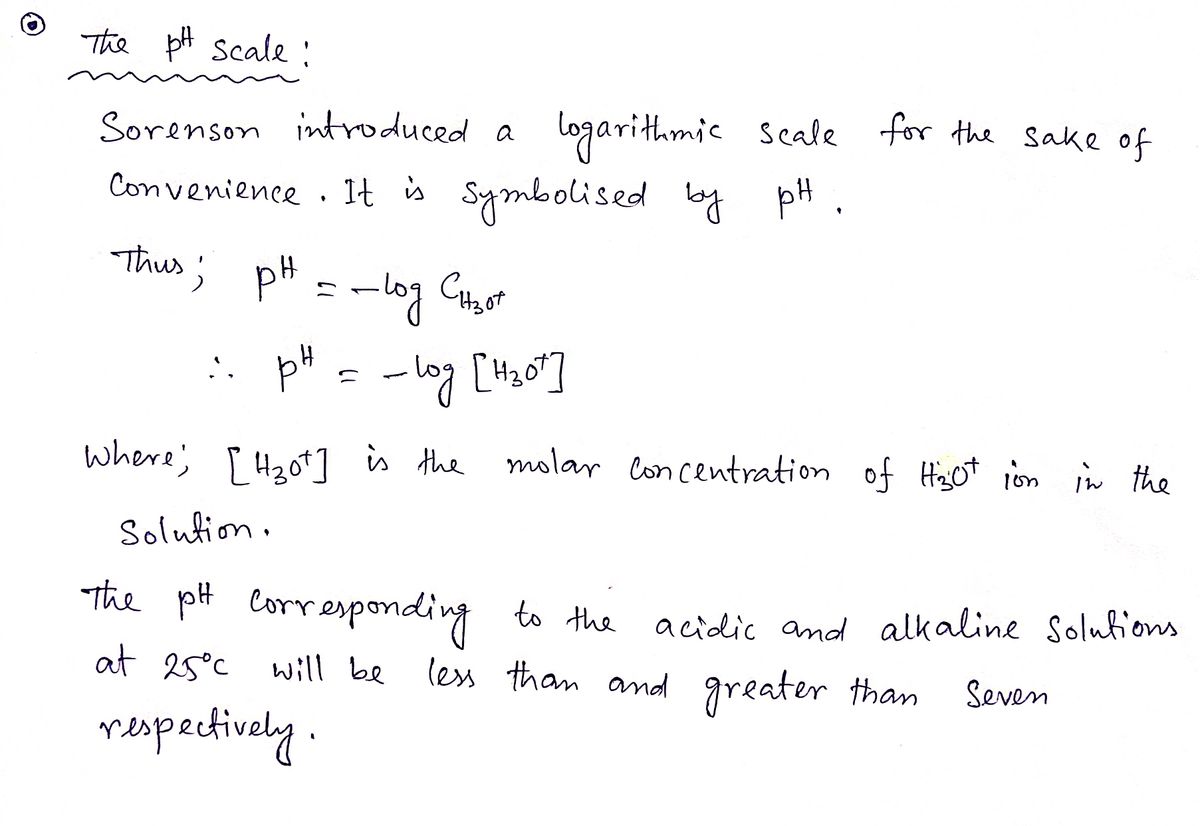 The pH scale :
Sorenson introduced a logarithmic scale for the sake of
Convenience . It is symbolised by pH .
Thus ; pH = -log C_H₃O⁺
∴ pH = -log [H₃O⁺]
Where; [H₃O⁺] is the molar concentration of H₃O⁺ ion in the
Solution .
The pH corresponding to the acidic and alkaline solutions
at 25°C will be less than and greater than seven
respectively .